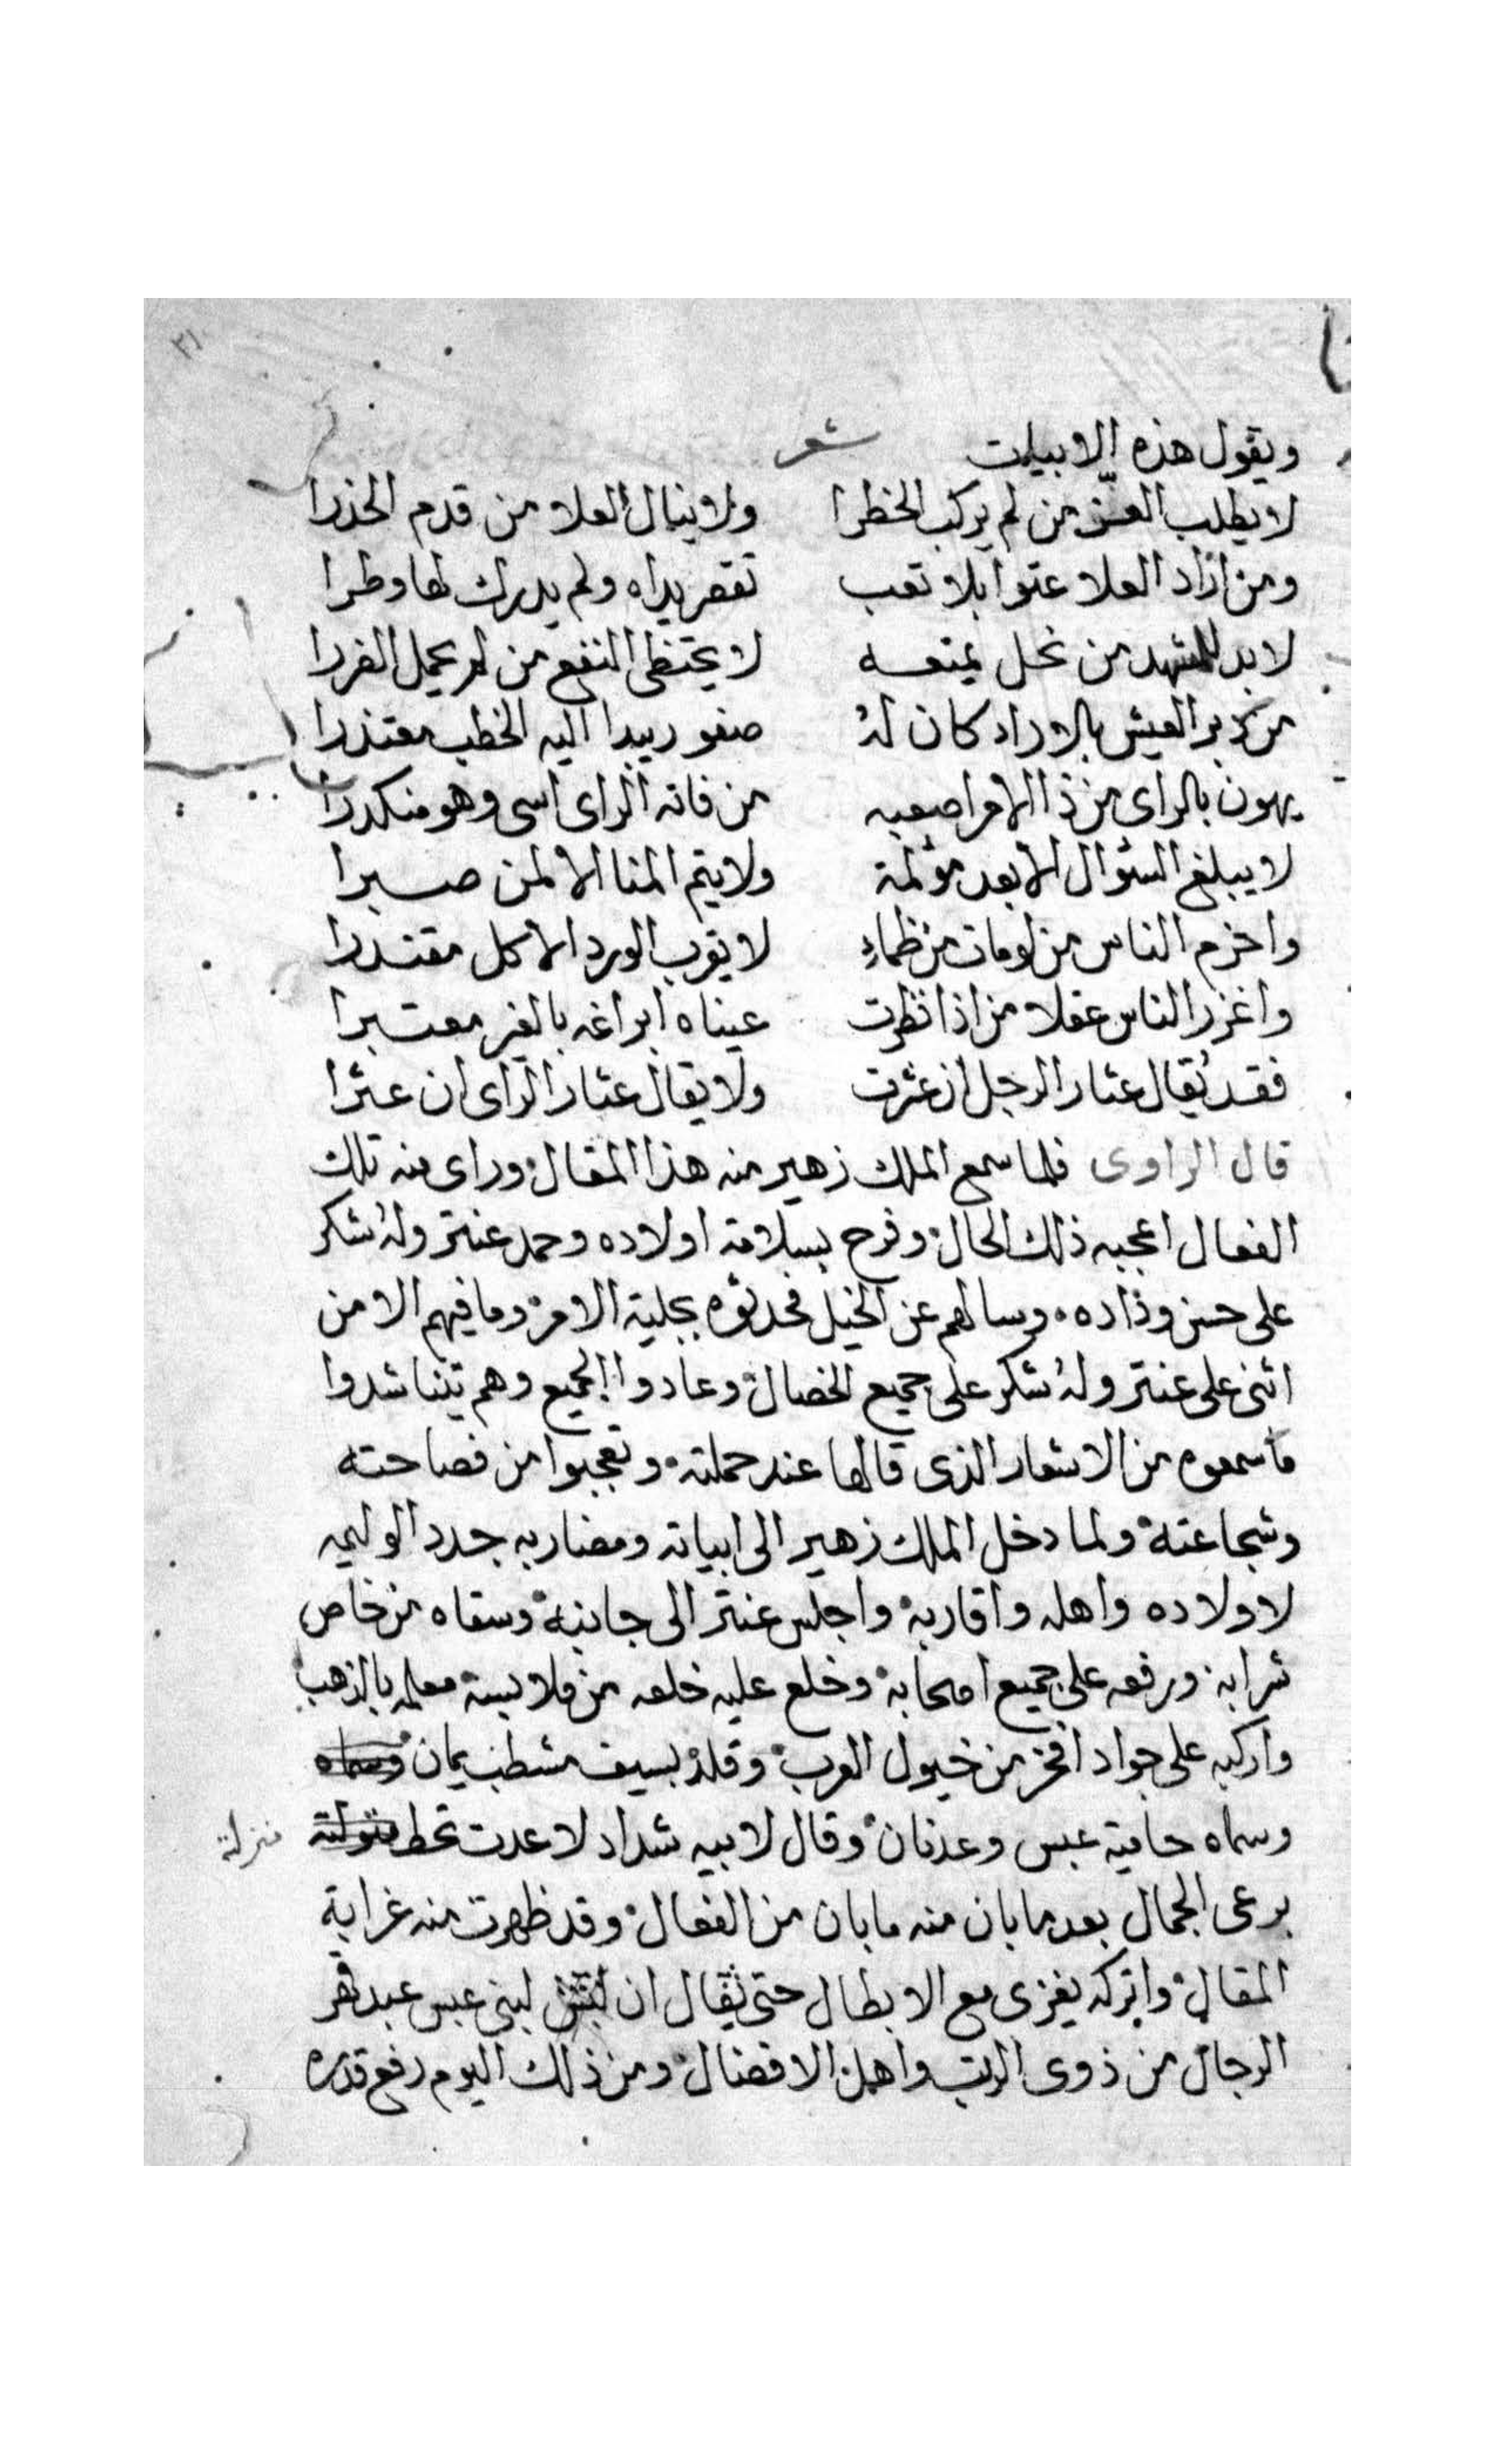 ٣١
ويقول هذه الابيات شعر
لا يطلب العز من لم يركب الخطرا ولا ينال العلا من قدم الحذرا
ومن اراد العلا عتوا بلا تعب تقصر يداه ولم يدرك لها وطرا
لابد للشهد من نحل يمنعه لا يحتظى النفع من لم يحمل الضررا
من دبر العيش بالاراد كان له صفو ريبدا اليه الخطب معتذرا
يهون بالراى من ذا الامر اصعبه من فاته الراى اسى وهو منكدرا
لا يبلغ السؤال الا بعد مؤلمة ولا يتم المنا الا لمن صبرا
واحزم الناس من لو مات من ظماء لا يقرب الورد الا كل مقتدرا
واغزر الناس عقلا من اذا نظرت عيناه ابراغه بالغير معتبرا
فقد يقال عثار الرجل ان عثرت ولا يقال عثار الراى ان عثرا
قال الراوى فلما سمع الملك زهير منه هذا المقال وراى منه تلك
الفعال اعجبه ذلك الحال وفرح بسلامة اولاده وحمد عنتر وله شكر
على حسن وداده وسالهم عن الخيل فحدثوه بجلية الامر وما فيهم الا من
اثنى على عنتر وله شكر على جميع الخصال وعادوا الجميع وهم يتناشدوا
ما سمعوه من الاشعار الذى قالها عند حملته وتعجبوا من فصاحته
وشجاعته ولما دخل الملك زهير الى ابياته ومضاربه جدد الوليمه
لاولاده واهله واقاربه واجلس عنتر الى جانبه وسقاه من خاص
شرابه ورفعه على جميع اصحابه وخلع عليه خلعه من ملابسه معلمه بالذهب
واركبه على جواد افخر من خيول العرب وقلده بسيف مشطب يمان
وسماه حامية عبس وعدنان وقال لابيه شداد لا عدت تحط منزلة
يرعى الجمال بعد ما بان منه ما بان من الفعال وقد ظهرت منه غراية
المقال واتركه يغزى مع الابطال حتى يقال ان لبنى عبس عبد قهر
الرجال من ذوى الرتب واهل الافضال ومن ذلك اليوم رفع قدره